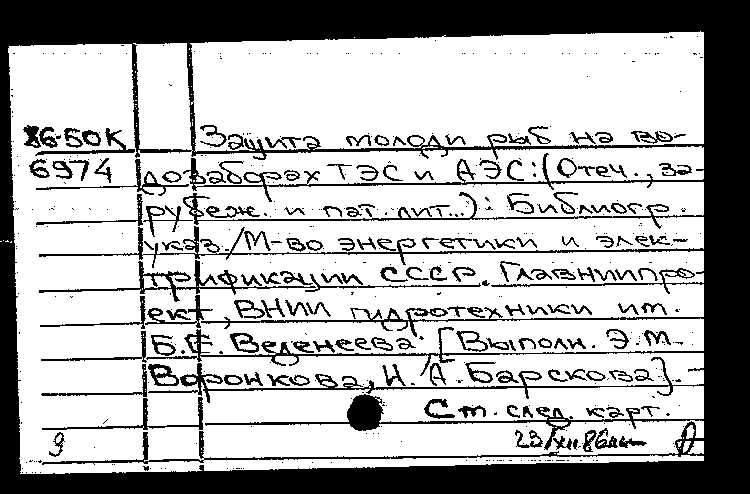 86-50К Защита молоди рыб на во-
6974 дозаборах ТЭС и АЭС: (Отеч., за-
рубеж. и пат. лит...): Библиогр.
указ./М-во энергетики и элек-
трификации СССР. Главниипро-
ект, ВНИИ гидротехники им.
Б.Е. Веденеева; [Выполн. Э.М.
Воронкова, И.А. Барскова]. -
См. след. карт.
9 23/XII 86